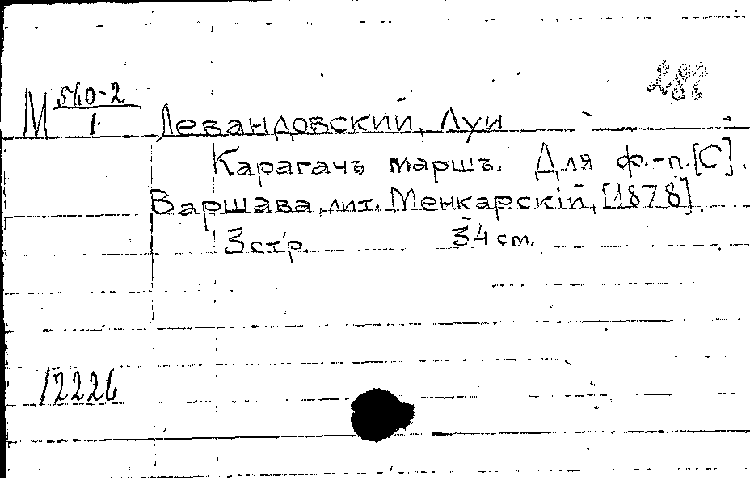 М 560-2/1 Левандовский, Луи
Карагачъ маршъ. Для ф.-п. [С].
Варшава, лит. Менкарскій, [1878].
3 стр. 34 cm.
12226